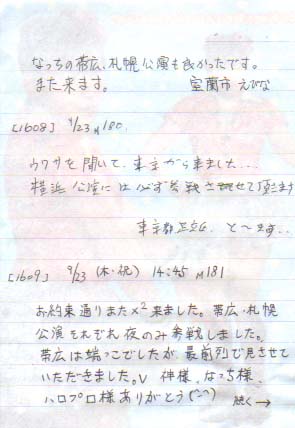 なっちの帯広、札幌公演も良かったです。
また来ます。 室蘭市 えびな
[1608] 9/23 M180.
ウワサを聞いて、東京から来ました...
横浜公演には必ず参戦させて頂きます
東京都足立区. と〜ます...
[1609] 9/23 (木・祝) 14:45 M181
お約束通りまた×2来ました。帯広・札幌
公演それぞれ夜のみ参戦しました。
帯広は端っこでしたが最前列で見させて
いただきました。V 神様、なっち様、
ハロプロ様ありがとう(^-^)
続く→